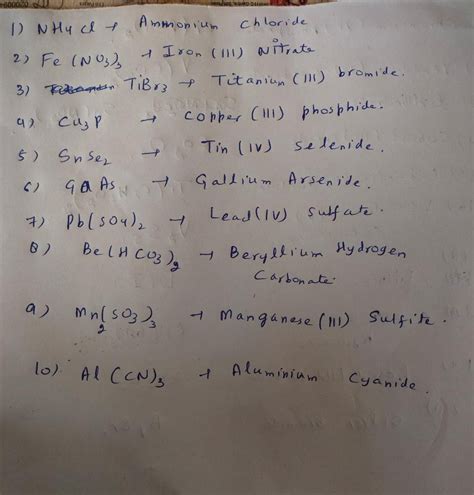 1) NH4Cl → Ammonium Chloride
2) Fe(NO3)3 → Iron (III) Nitrate
3) TiBr3 → Titanium (III) bromide.
4) Cu3P → Copper (III) phosphide.
5) SnSe2 → Tin (IV) Selenide.
6) GaAs → Gallium Arsenide.
7) Pb(SO4)2 → Lead(IV) Sulfate.
8) Be(HCO3)2 → Beryllium Hydrogen
Carbonate
9) Mn2(SO3)3 → Manganese (III) Sulfite.
10) Al(CN)3 → Aluminium Cyanide.